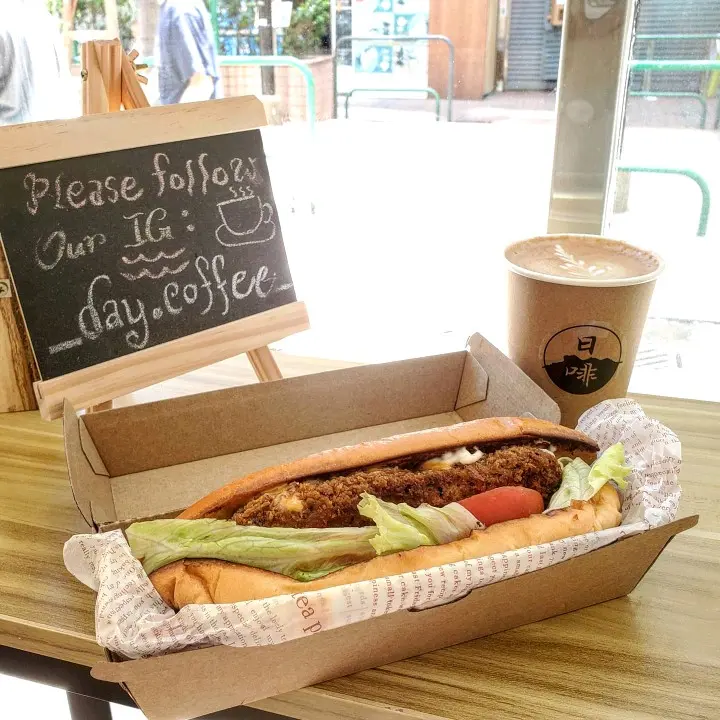 Please follow
Our IG:
_day.coffee_
日
啡